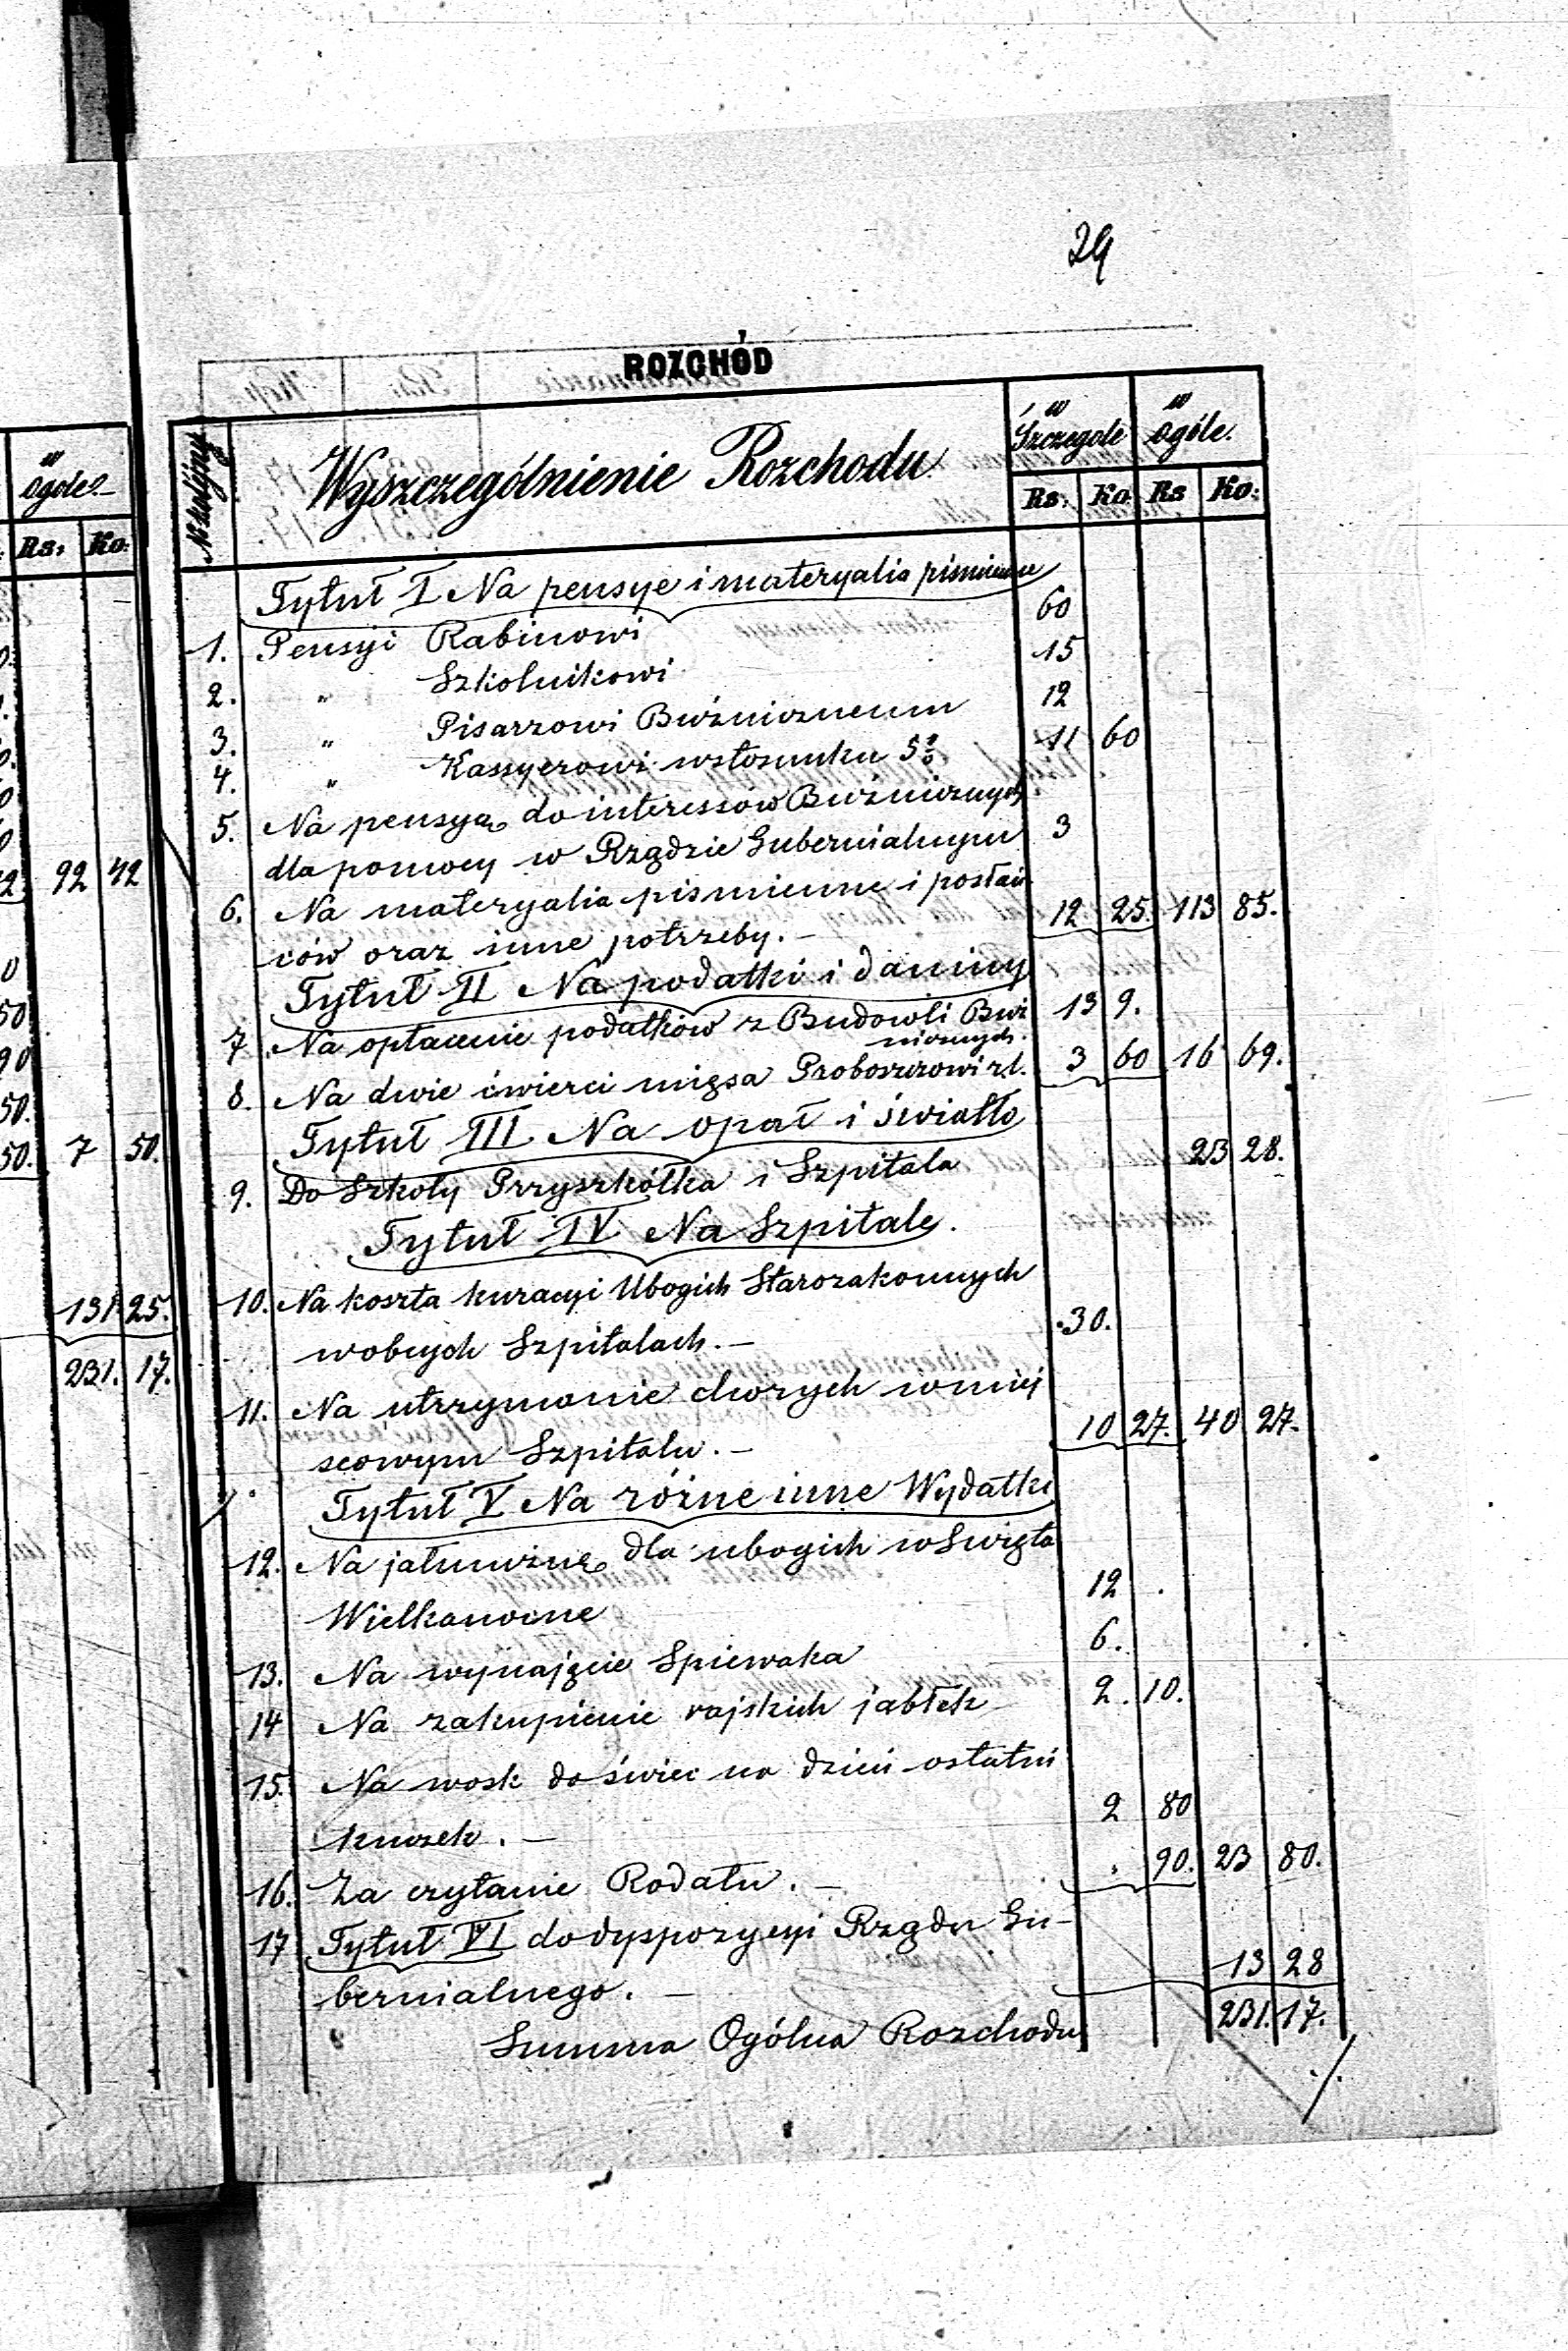 29
ROZCHÓD
№ kolejny
Wyszczególnienie Rozchodu
w Szczegole
w ogóle.
Rs: Ko Rs Ko:
Tytuł I Na pensye i materyalia piśmienne
1. Pensyi Rabinowi 60
2. " Szkolnikowi 15
3. " Pisarzowi Bużnicznemu 12
4. " Kassyerowi wstosunku 5% 11 60
5. Na pensyą do interessów Bużnicznych
dla pomocy w Rządzie Gubernialnym 3
6. Na materyalia piśmienne i posłań
ców oraz inne potrzeby. — 12 25. 113 85.
Tytuł II Na podatki i daniny
7 Na opłacenie podatków z Budowli Buż 13 9.
nicznych.
8. Na dwie ćwierci mięsa Proboszczowi zł. 3 60 16 69.
Tytuł III Na opał i światło
9. Do Szkoły Przyszkółka i Szpitala 23 28.
Tytuł IV Na Szpitale.
10. Na koszta kuracyi Ubogich Starozakonnych
wobcych Szpitalach. — 30.
11. Na utrzymanie chorych wmiej
scowym Szpitalu. — 10 27. 40 27.
Tytuł V Na różne inne Wydatki
12. Na jałmużnę dla ubogich wświęta
Wielkanocne 12 .
13. Na wynajęcie Spiewaka 6.
14 Na zakupienie rajskich jabłek 2. 10.
15. Na wosk do świec na dzień ostatni
kuczek. — 2 80
16. Za czytanie Rodału. — . 90. 23 80.
17 Tytuł VI do dyspozycyi Rządu Gu-
bernialnego. — 13 28
Summa Ogólna Rozchodu 231. 17.
./.
w ogóle. —
Rs: Ko:
92 42
7 50.
131 25.
231. 17.